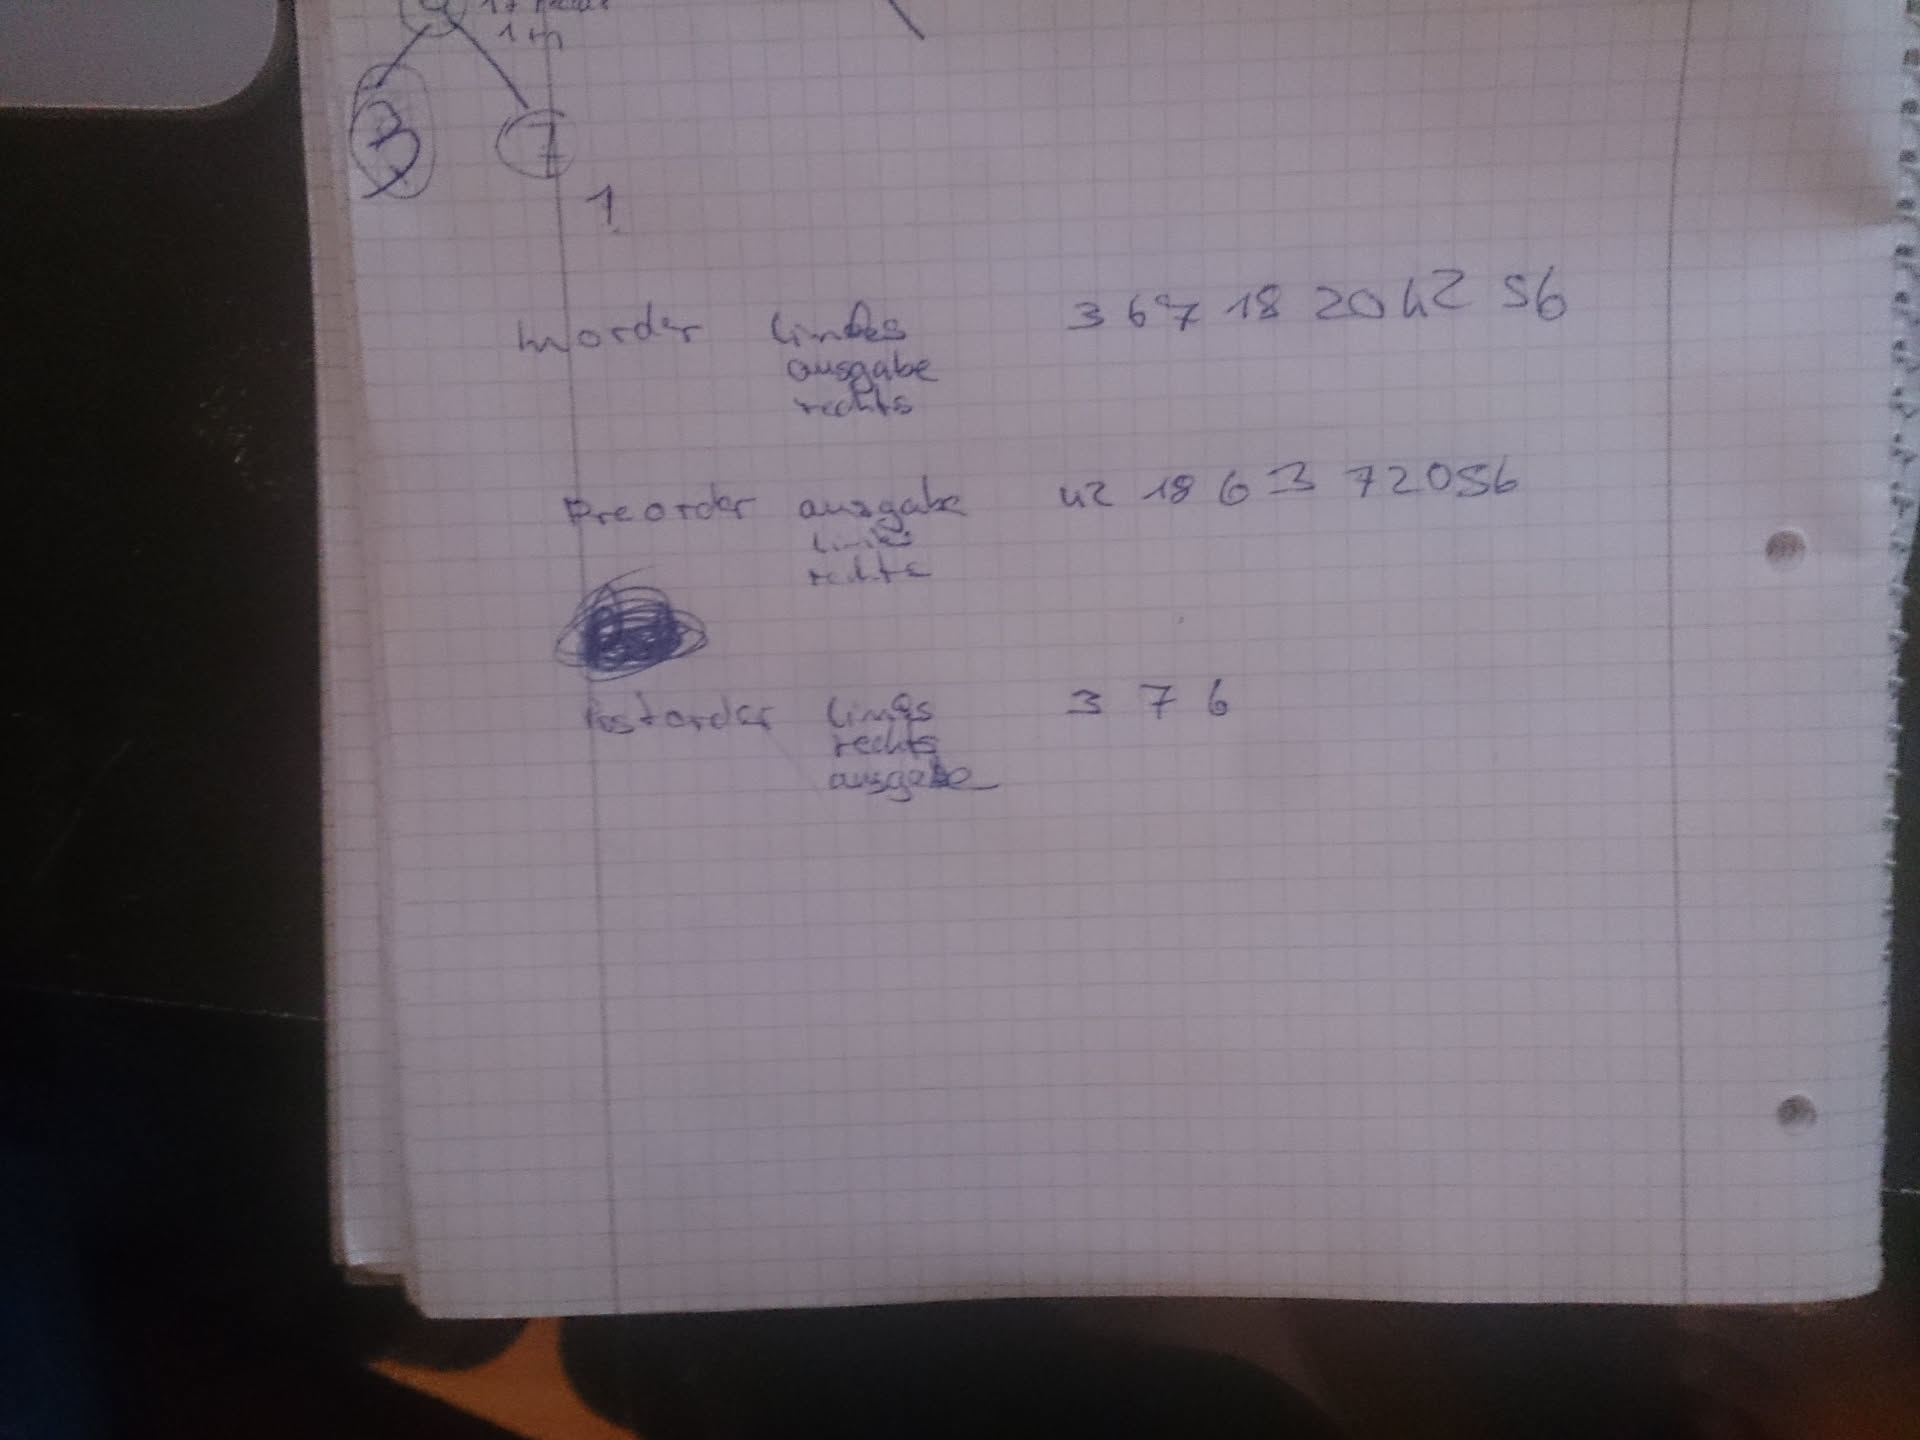 1 m
7
1
Inorder links 3 6 7 18 20 42 56
ausgabe
rechts
Preorder ausgabe 42 18 6 3 7 20 56
links
rechts
Postorder links 3 7 6
rechts
ausgabe